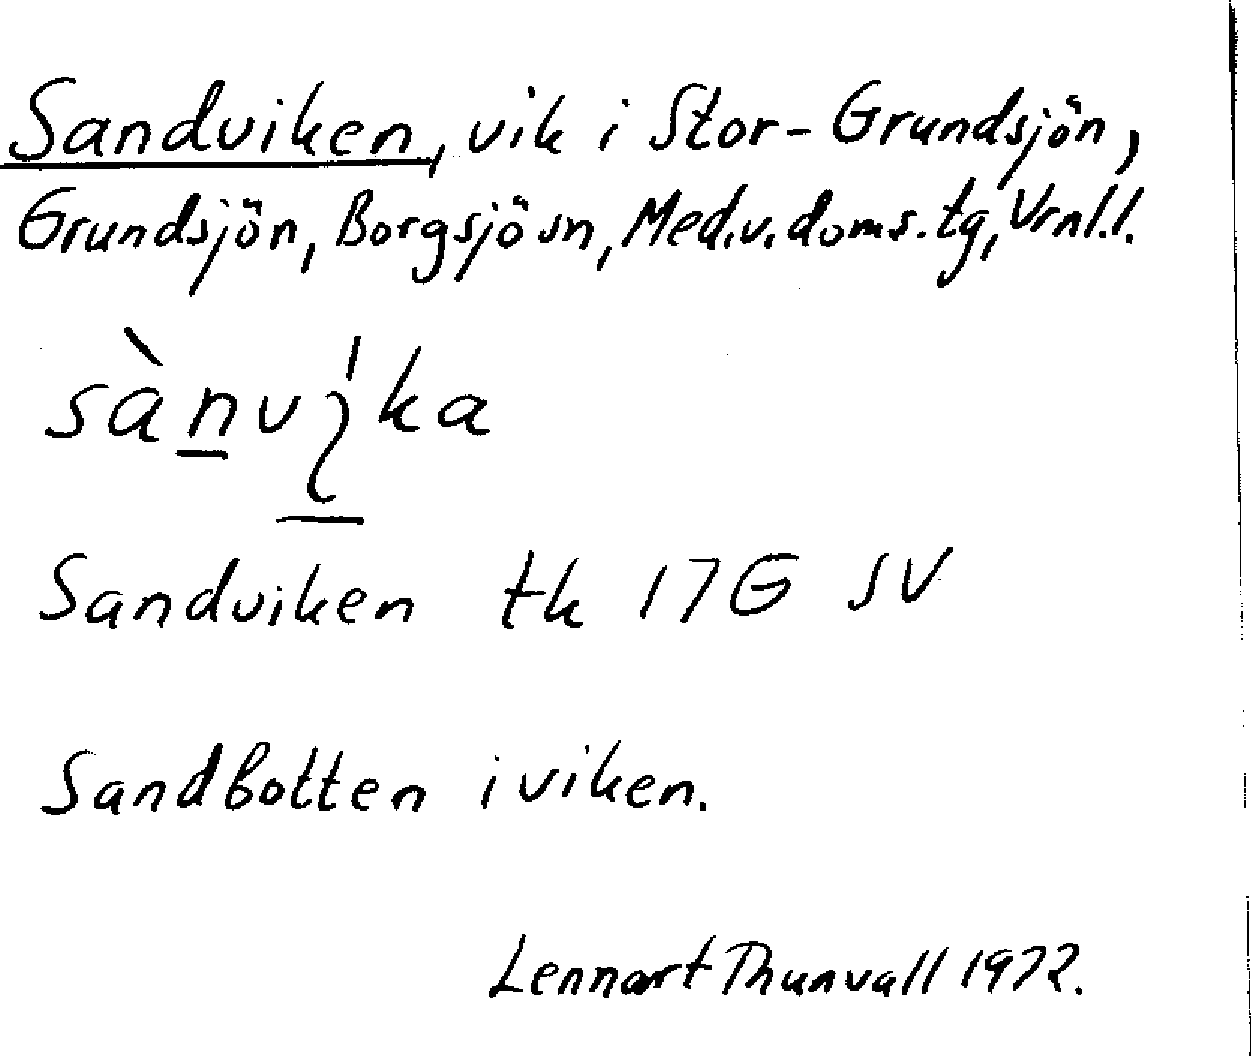 Sandviken, vik i Stor-Grundsjön,
Grundsjön, Borgsjö sn, Med.v.doms.tg, Vrnl.l.
Sandviken tk 17G SV
Sandbotten i viken.
Lennart Thunvall 1972.